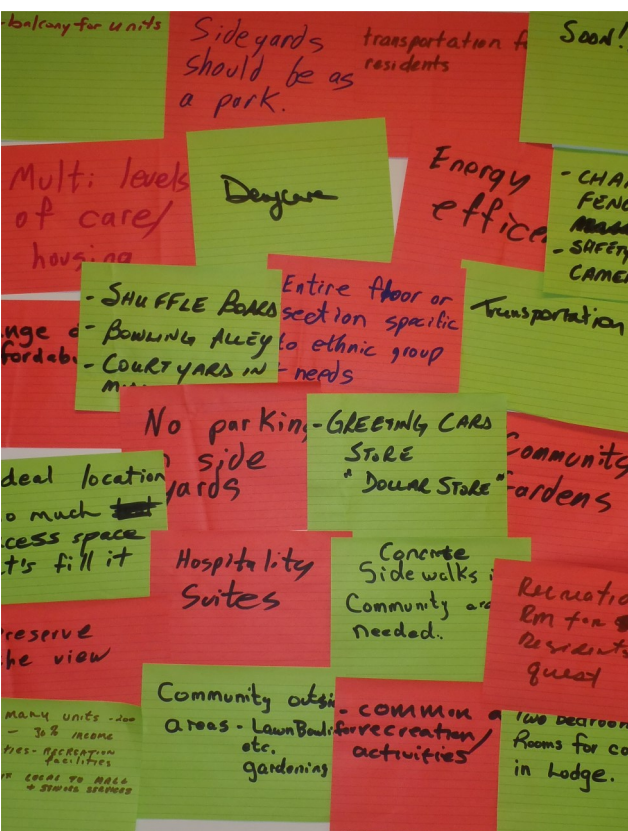 -balcony for units
Side yards
should be as
a park.
transportation f
residents
Soon!
Multi levels
of care/
housing
Daycare
Energy
effice
- CHA
FENC
- SAFETY
CAMER
nge o
fordab
- SHUFFLE BOARD
- BOWLING ALLEY
- COURTYARD IN
Entire floor or
section specific
to ethnic group
- needs
Transportation
No parking
side
yards
- GREETING CARD
STORE
"DOLLAR STORE"
Community
Gardens
deal location
o much
cess space
t's fill it
Hospitality
Suites
Concrete
Sidewalks i
Community are
needed.
Recreatio
Rm for
Residents
quest
reserve
he view
many units - 200
- 30% income
ties - RECREATION
facilities
LOCAL TO MALL
+ SENIOR SERVICES
Community outsi
areas - Lawn Bowli
etc.
gardening
- common a
for recreation
activities
Two bedroom
Rooms for co
in Lodge.